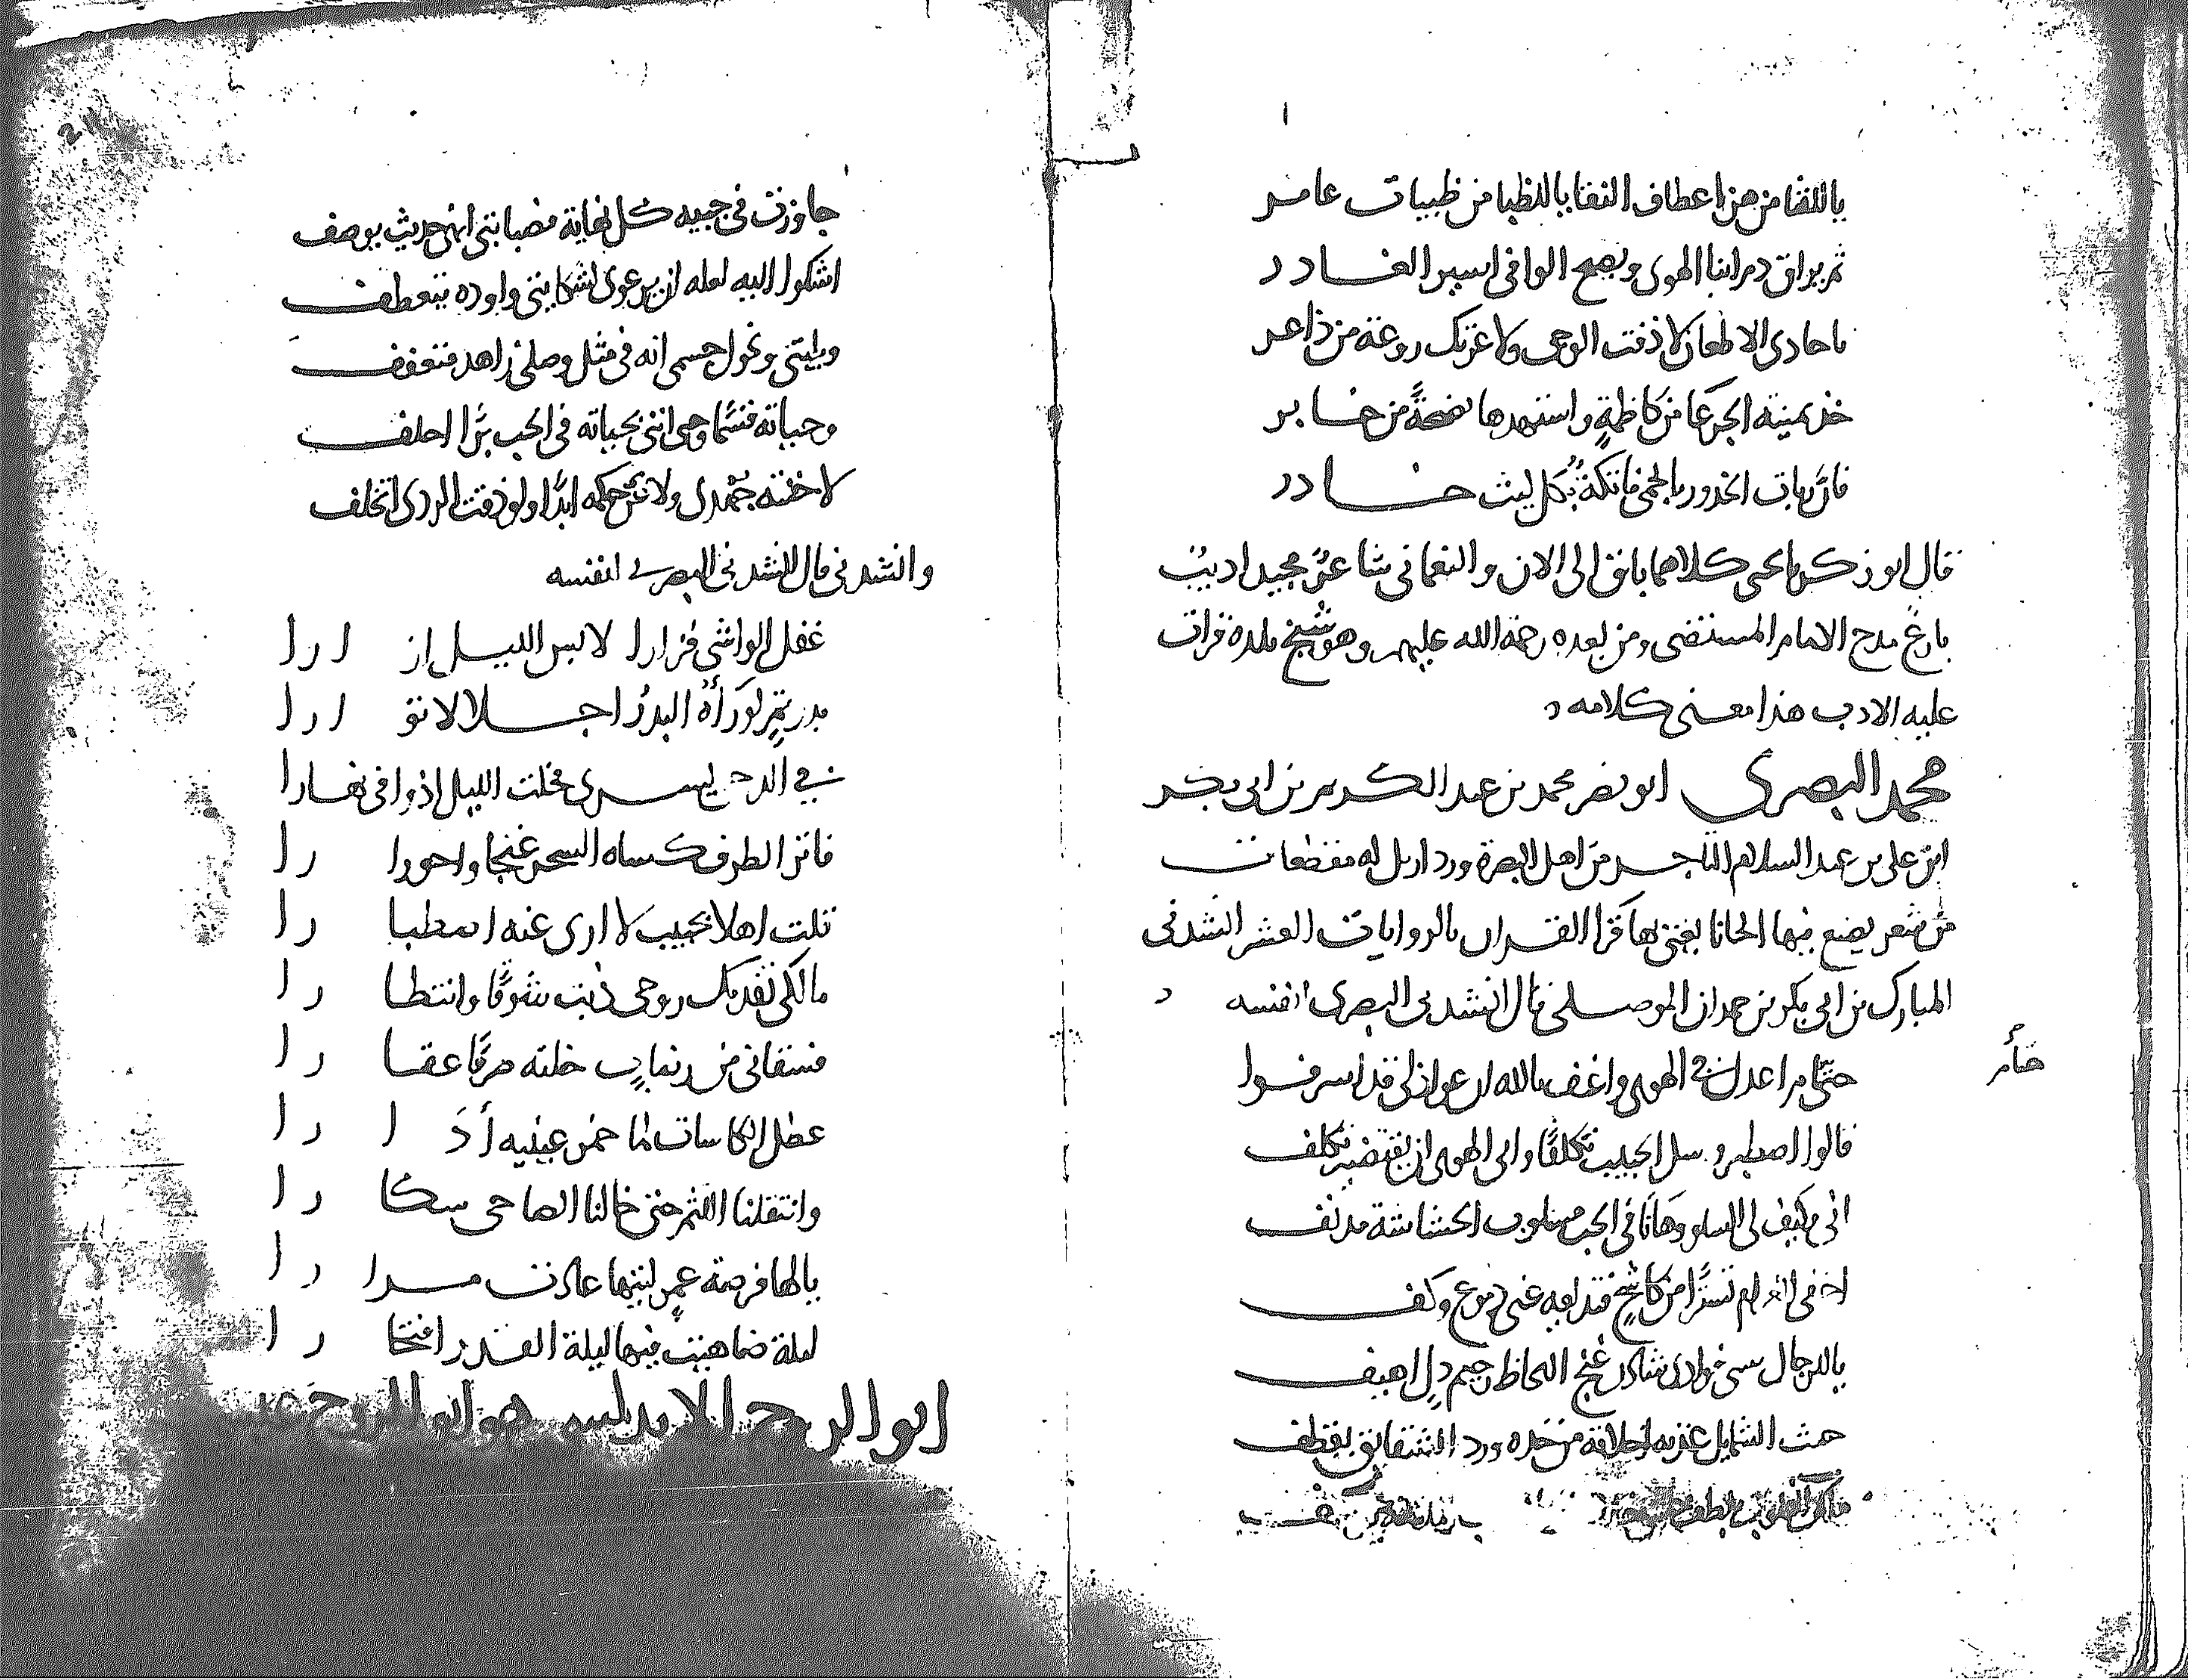 ياللقنا من هز اعطاف النقا ياللظبا من ظبيات عامر
ثم يراق دمرابنا الهوى ويصبح الوافى اسير الغادر
يا حادى الاظعان لا ذقت الوجى ولا عرتك روعة من ذاعر
خذ يمينة الجرعا من كاظمةٍ واستهدها نفحةً من حابر
فان ربات الخدور بالحمى فاتكةٌ بكل ليث خادر
قال ابو زكريا يحيى كلاهما باق الى الان والنعمانى شاعرٌ مجيد اديبٌ
بارعٌ مدح الامام المستضى ومن بعده رحمة الله عليهم وهو شيخ بلده قرات
عليه الادب هذا معنى كلامه
محمد البصرى ابو نصر محمد بن عبد الكريم بن ابى بكر
ابن على بن عبد السلام التاجر من اهل البصرة ورد اربل له مقطعات
من شعر يصنع فيها الحانا يغنى بها قرا القران بالروايات العشر انشدنى
المبارك بن ابى بكر بن حمدان الموصلى قال انشدنى البصرى لنفسه
حتّام اعدل فى الهوى واعنف يالله ان عواذلى قد اسرفوا
حتام
قالوا اصطبر وسل الحبيب تكلفًا وابى الهوى ان يقتضيه تكلف
انى وكيف لى السلو وها انا فى الحب مسلوب الحشاشة مدنف
اخفى الغرام تسترًا من كاشحٍ فتذيعه عنى دموع وكف
ياللرجال سبى فوادى شادن غنج اللحاظ رحيم دلٍ اهيف
خنث الشمايل عذبه اخلاقه من خده ورد الشقايق يقطف
جاوزت فى حبيه كل نهاية فصبابتى انهى حديث يوصف
اشكوا اليه لعله ان يرعوى لشكايتى واوده يتعطف
وبليتى ونحول جسمى انه فى مثل وصلى زاهد متعفف
وحياته قسمًا وحى اننى بحياته فى الحب برًّا احلف
لا خنته جهدى ولا عن حكمه ابدًا ولو ذقت الردى اتخلف
وانشدنى قال انشدنى البصرى لنفسه
غفل الواشى فزارا لابس الليل ازارا
بدر تمٍ لو رأه البدرُ اجلالا توارا
فى الدجى يسرى فخلت الليل اذ وافى نهارا
فاتر الطرف كساه السحر غنجا واحورارا
قلت اهلا بحبيب لا ارى عنه اصطبارا
مالكى تفديك روحى ذبت شوقًا وانتظارا
فسقانى من رضابٍ خلته صرفًا عقارا
عطل الكاسات لما خمر عينيه أدَارا
وانتقلنا اللثم حتى خالنا الصاحى سكارا
يالها فرصة عمرٍ ليتها عادت مرارا
ليلة ضاهيت فيها ليلة القدر افتخارا